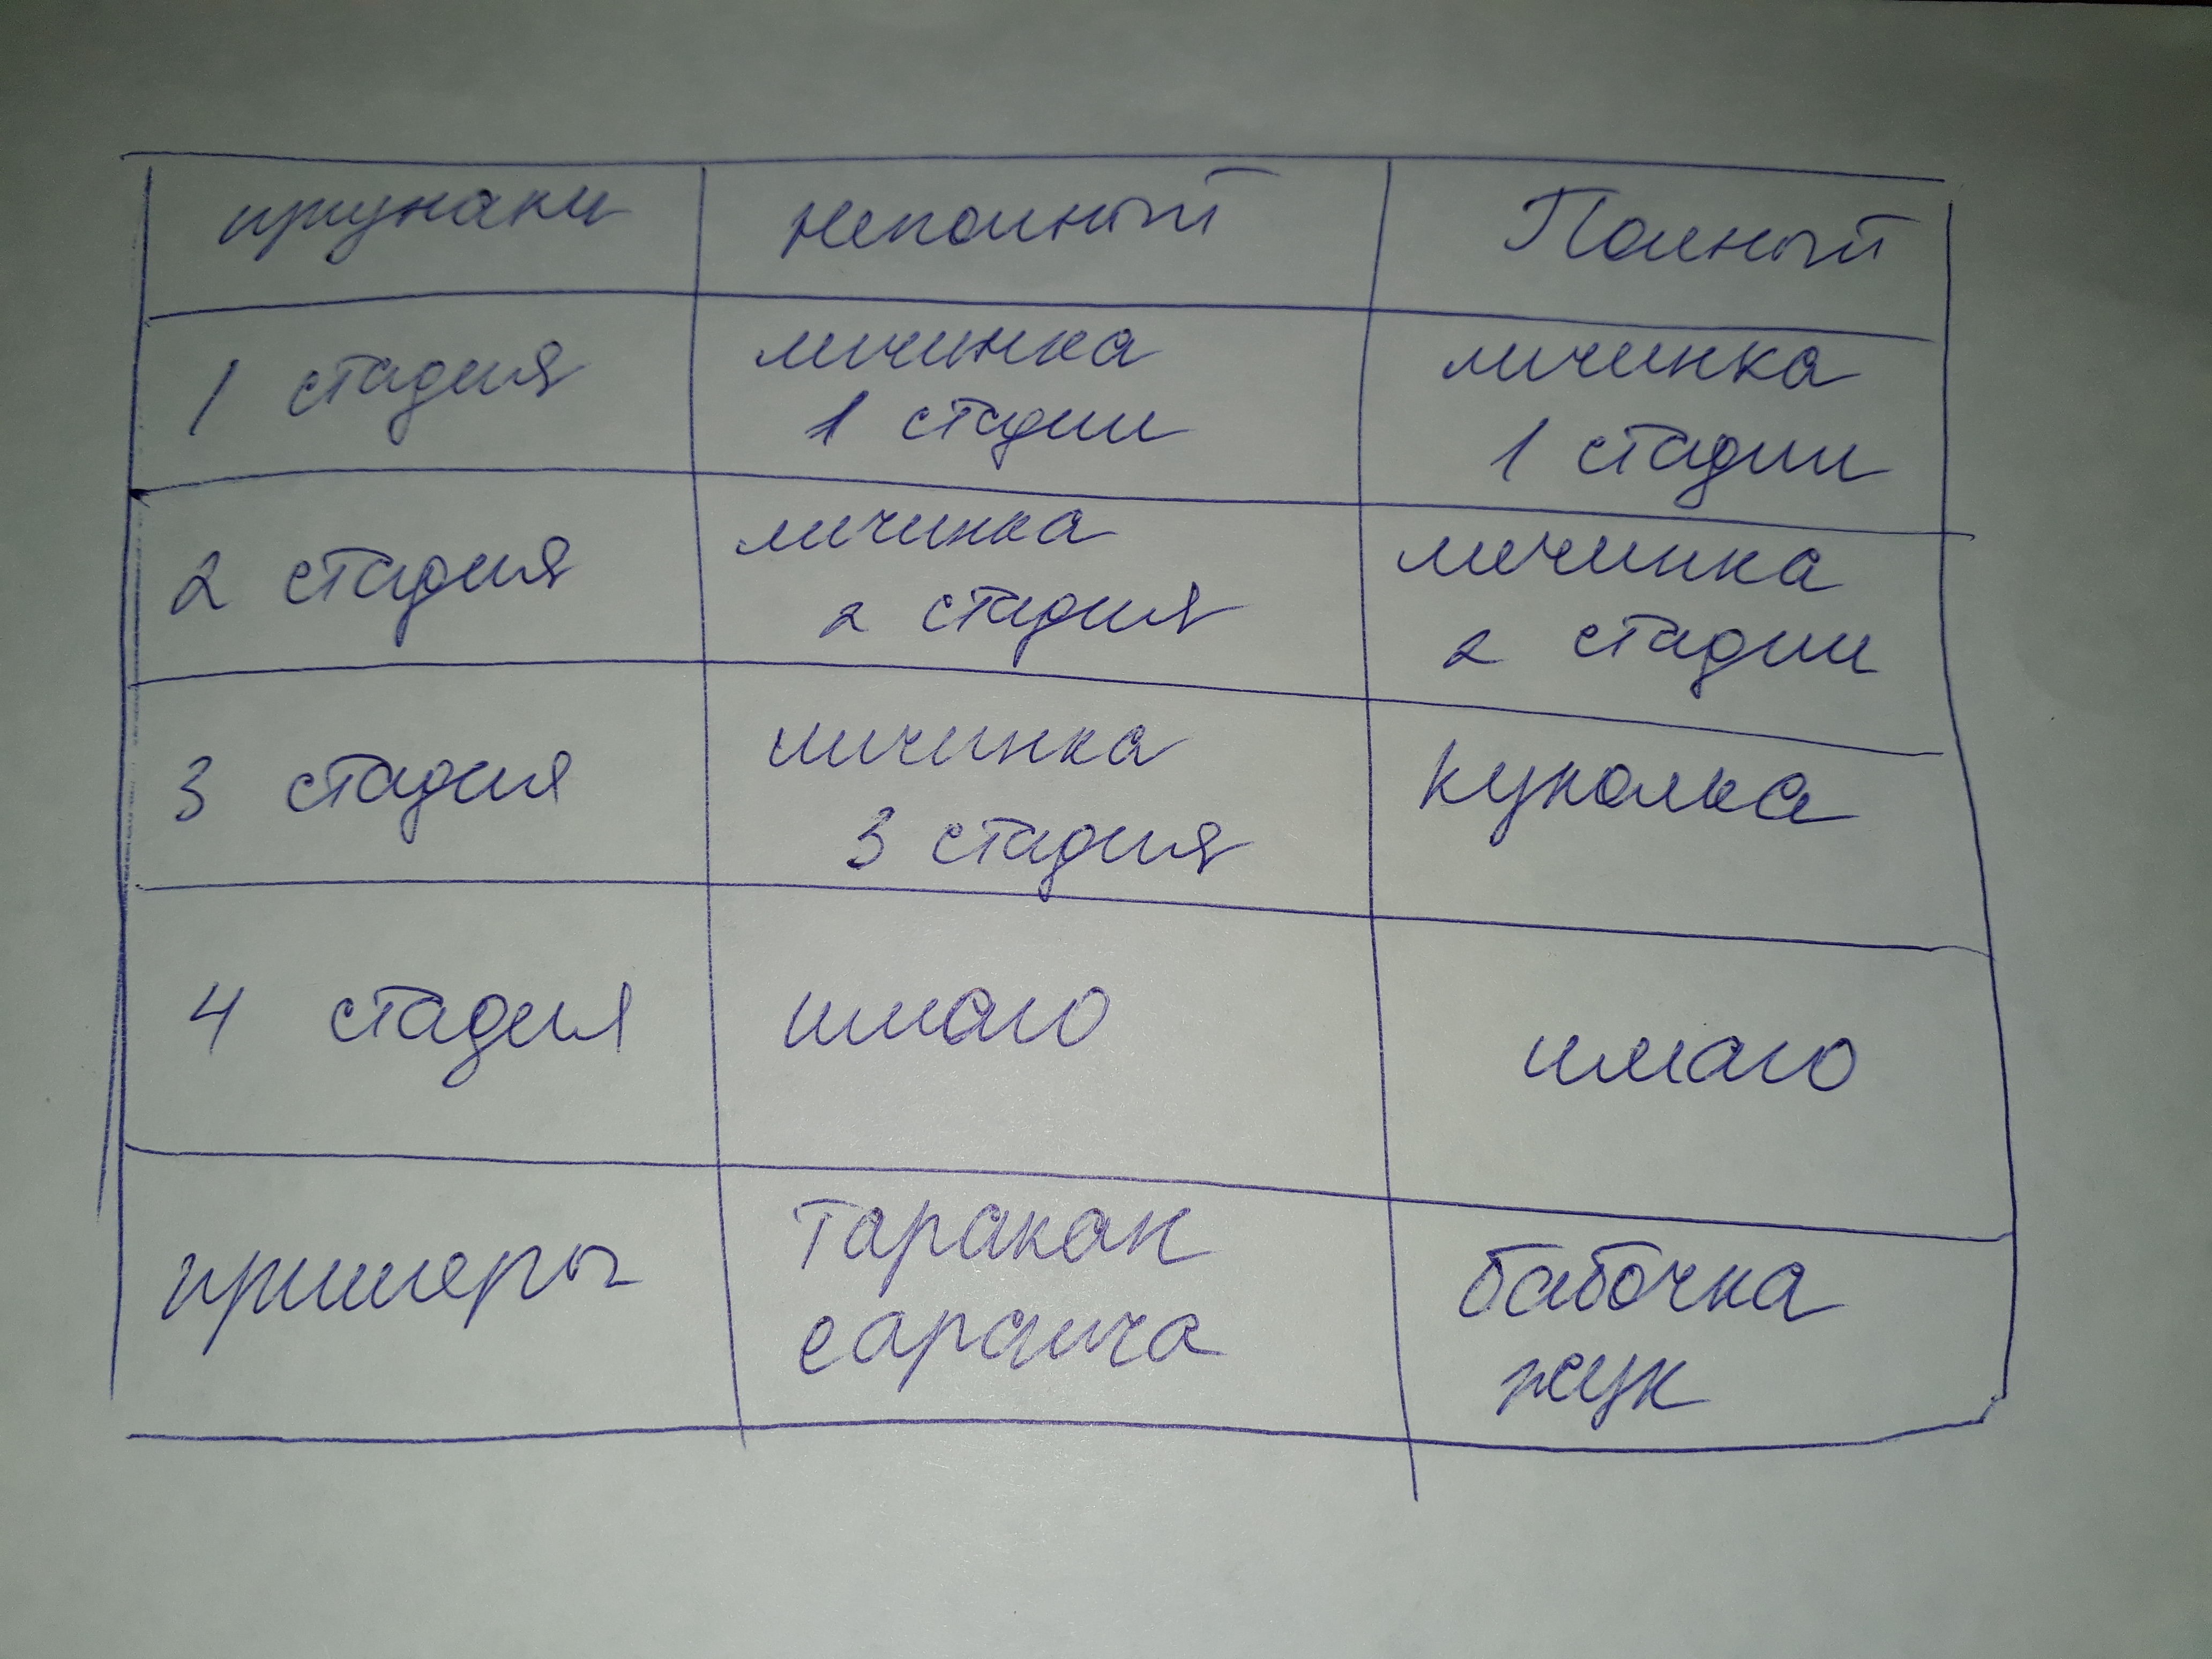 признаки неполный Полный
1 стадия личинка 1 стадии личинка 1 стадии
2 стадия личинка 2 стадия личинка 2 стадии
3 стадия личинка 3 стадия куколка
4 стадия имаго имаго
примеры таракан саранча бабочка жук